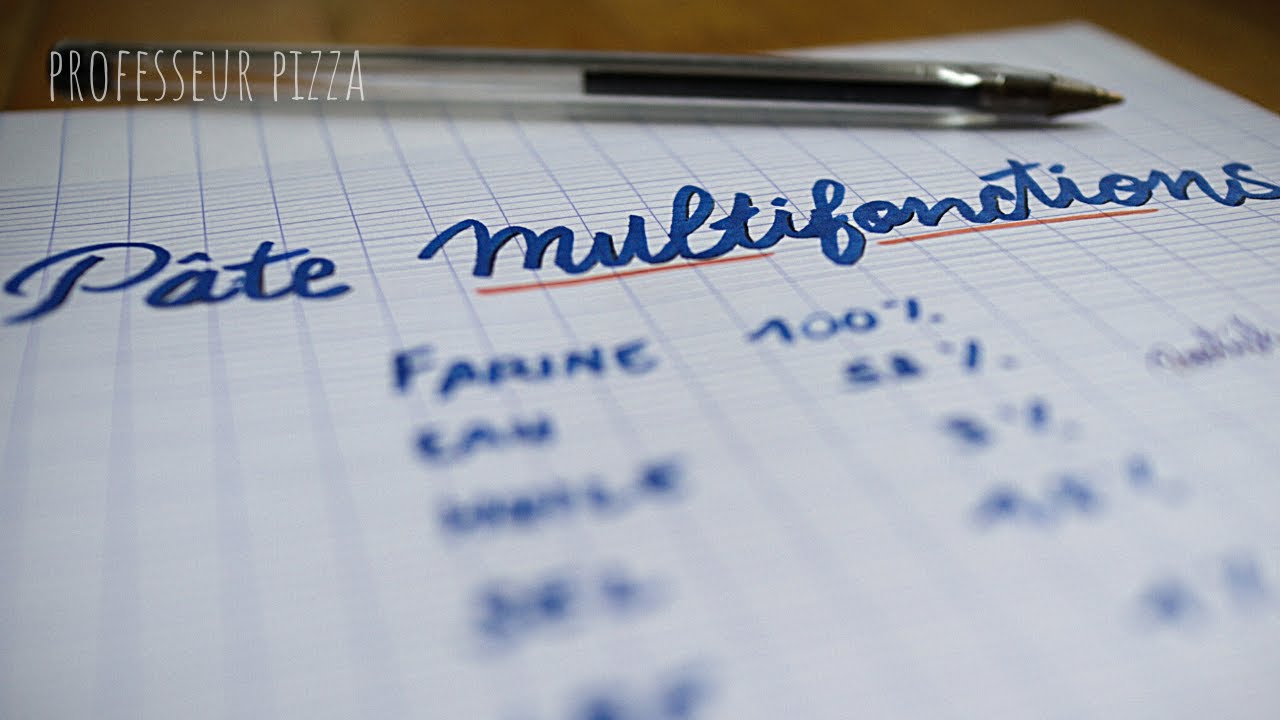 PROFESSEUR PIZZA
Pâte multifonctions
FARINE 100%
EAU
HUILE 3%
SEL